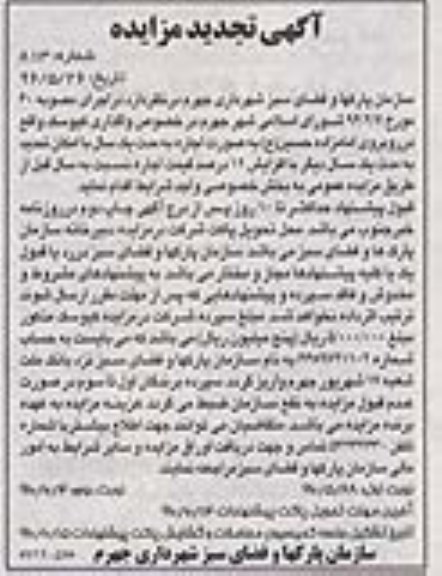 آگهی تجدید مزایده
شماره:
تاریخ:
سازمان پارکها و فضای سبز شهرداری جهرم در نظر دارد در اجرای مصوبه ۶۰
مورخ شورای اسلامی شهر جهرم در خصوص واگذاری کیوسک واقع
در روبروی امامزاده حسین(ع) به صورت اجاره به مدت یک سال با امکان تمدید
به مدت یک سال دیگر با افزایش درصد قیمت اجاره نسبت به سال قبل از
طریق مزایده عمومی به بخش خصوصی واجد شرایط اقدام نماید
قبول پیشنهاد حداکثر تا ۱۰ روز پس از درج آگهی چاپ دوم در روزنامه
خبرجنوب می باشد محل تحویل پاکات شرکت در مزایده دبیرخانه سازمان
پارک ها و فضای سبز می باشد سازمان پارکها و فضای سبز در رد یا قبول
یک یا کلیه پیشنهادها مجاز و مختار می باشد به پیشنهادهای مشروط و
مخدوش و فاقد سپرده و پیشنهادهایی که پس از مهلت مقرر ارسال شوند
ترتیب اثر داده نخواهد شد مبلغ سپرده شرکت در مزایده کیوسک مذکور
مبلغ ریال (پنج میلیون ریال) می باشد که می بایست به حساب
شماره به نام سازمان پارکها و فضای سبز نزد بانک ملت
شعبه ۱۷ شهریور جهرم واریز گردد سپرده برندگان اول تا سوم در صورت
عدم قبول مزایده به نفع سازمان ضبط می گردد هزینه مزایده به عهده
برنده مزایده می باشد متقاضیان می توانند جهت اطلاع بیشتر با شماره
تلفن تماس و جهت دریافت اوراق مزایده و سایر شرایط به امور
مالی سازمان پارکها و فضای سبز مراجعه نمایند
نوبت اول: نوبت دوم:
آخرین مهلت تحویل پاکت پیشنهادات
تاریخ تشکیل جلسه کمیسیون معاملات و گشایش پاکت پیشنهادات
سازمان پارکها و فضای سبز شهرداری جهرم